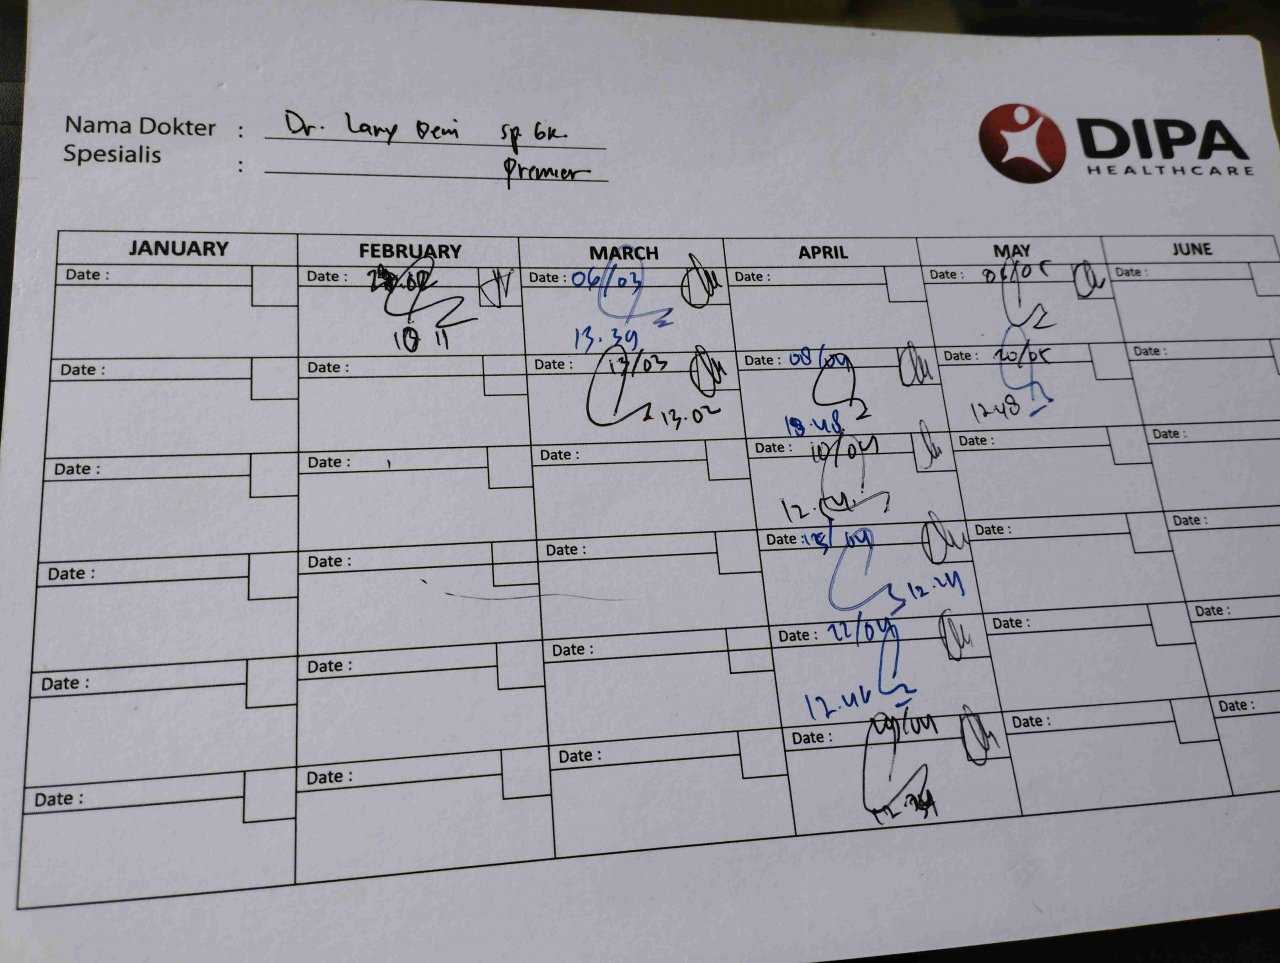 Nama Dokter : Dr. Lary Deni sp GK.
Spesialis : Premier
DIPA
HEALTHCARE
JANUARY FEBRUARY MARCH APRIL MAY JUNE
Date : Date : Date : 06/03 Date : Date : 06/05 Date :
13.39
Date : Date : Date : 13/03 Date : 08/04 Date : 20/05 Date :
13.02 12.48
Date : Date : Date : Date : 10/04 Date : Date :
Date : Date : Date : Date : Date : Date :
12.24
Date : Date : Date : Date : 22/04 Date : Date :
12.46
Date : Date : Date : Date : 29/04 Date : Date :